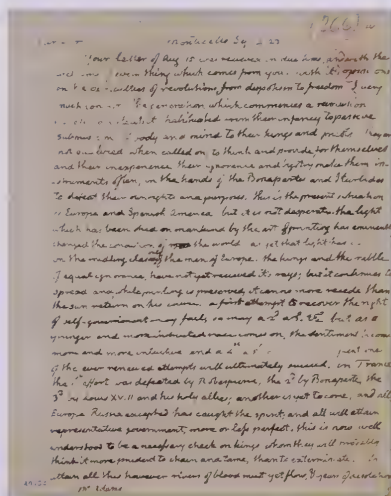 (266)
Monticello Sep. 4. 23
Your letter of Aug 15 was received in due time, and with the
every thing which comes from you. with it's opinions
on the difficulties of revolutions from despotism to freedom I very
much The generation which commences a revolution
habituated from their infancy to passive
submission of body and mind to their kings and priests they are
not when called on to think and provide for themselves
and their inexperience, their ignorance and bigotry make them in-
struments often, in the hands of the Bonapartes and Iturbides
to defeat their own rights and purposes. this is the present situation
of Europe and Spanish America. but it is not desperate. the light
which has been shed on mankind by the art of printing has eminently
changed the condition of the world. as yet that light has
on the middling classes only of the men of Europe. the kings and the rabble
of equal ignorance, have not yet received it's rays; but it continues to
spread. and while printing is preserved, it can no more recede than
the sun return on his course. a first attempt to recover the right
of self-government may fail, so may a 2d a 3d Etc but as a
younger and more instructed race comes on, the sentiment becomes
more and more intuitive, and a 4th a 5th one
of the ever renewed attempts will ultimately succeed. in France
the 1st effort was defeated by Robespierre, the 2d by Bonaparte, the
3d by Louis XVIII and his holy allies; another is yet to come, and all
Europe, Russia excepted, has caught the spirit, and all will attain
representative government, more or less perfect. this is now well
understood to be a necessary check on kings, whom they will probably
think it more prudent to chain and tame, than to exterminate. to
attain all this however rivers of blood must yet flow, & years of desolation
Mr Adams